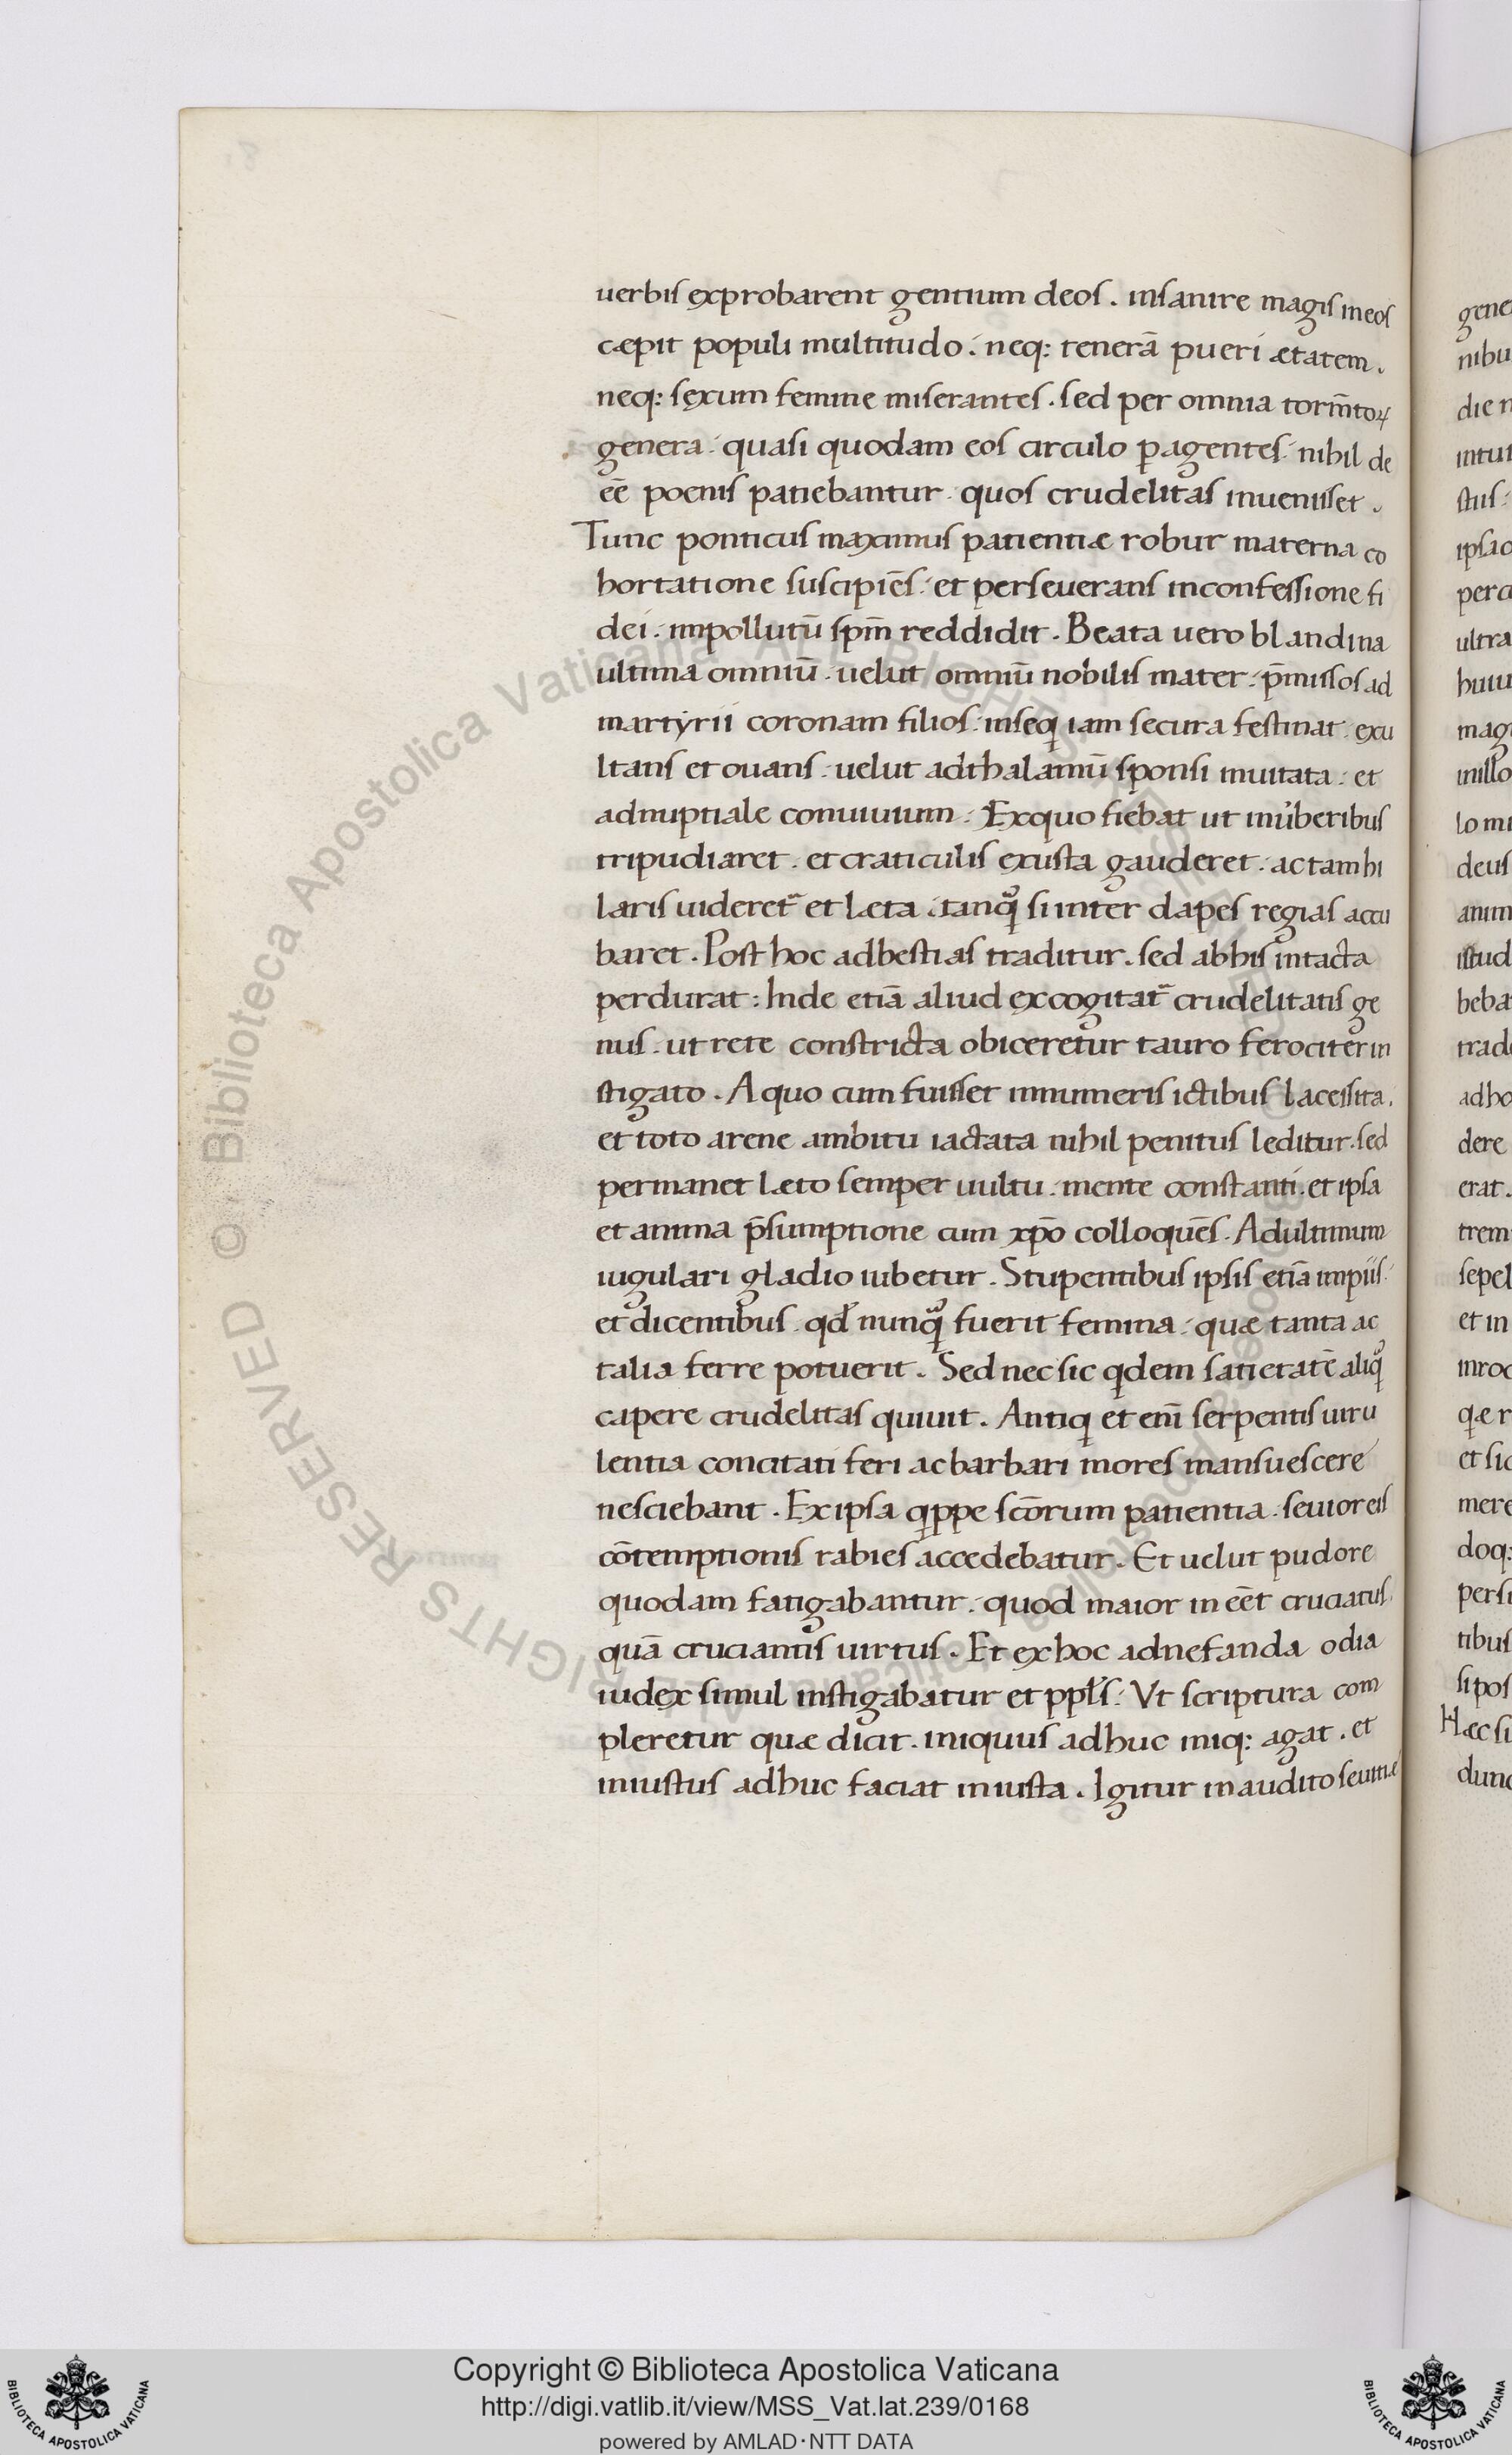 uerbis exprobarent gentium deos. insanire magis in eos
cæpit populi multitudo. neq: tenerā pueri ætatem.
neq: sexum femine miserantes. sed per omnia torm̄toꝝ
genera. quasi quodam eos circulo ꝑagentes. nihil de
eē poenis patiebantur. quos crudelitas inuenisset.
Tunc ponticus maximus patientiæ robur materna co
hortatione suscipiēs. et perseuerans in confessione fi
dei. impollutū spm̄ reddidit. Beata uero blandina
ultima omniū. uelut omniū nobilis mater. p̄missos ad
martyrii coronam filios. inseq̇ iam secura festinat. exu
ltans et ouans. uelut ad thalamū sponsi inuitata. et
ad nuptiale conuiuium. Ex quo fiebat ut in uberibus
tripudiaret. et craticulis exusta gauderet. ac tam hi
laris uideret᷑ et læta. tanq̃ si inter dapes regias accu
baret. Post hoc ad bestias traditur. sed ab his intacta
perdurat: Inde etiā aliud excogitat᷑ crudelitatis ge
nus. ut rete constricta obiceretur tauro ferociter in
stigato. A quo cum fuisset innumeris ictibus lacessita.
et toto arene ambitu iactata nihil penitus leditur. sed
permanet læto semper uultu. mente constanti. et ipsa
et anima p̄sumptione cum xp̄o colloquēs. Ad ultimum
iugulari gladio iubetur. Stupentibus ipsis etiā impiis.
et dicentibus. qd̛ nunq̃ fuerit femina. quæ tanta ac
talia ferre potuerit. Sed nec sic qdem satietatē aliq̃
capere crudelitas quiuit. Antiq et enī serpentis uiru
lentia concitati feri ac barbari mores mansuescere
nesciebant. Ex ipsa qppe scōrum patientia. seuior eis
cōtemptionis rabies accedebatur. Et uelut pudore
quodam fatigabantur. quod maior in eēt cruciatus.
quā cruciantis uirtus. Et ex hoc ad nefanda odia
iudex simul instigabatur et ppl̛s. Vt scriptura com
pleretur quæ dicit. iniquus adhuc iniq: agat. et
iniustus adhuc faciat iniusta. Igitur inaudito seuitiæ
Copyright © Biblioteca Apostolica Vaticana
http://digi.vatlib.it/view/MSS_Vat.lat.239/0168
powered by AMLAD·NTT DATA